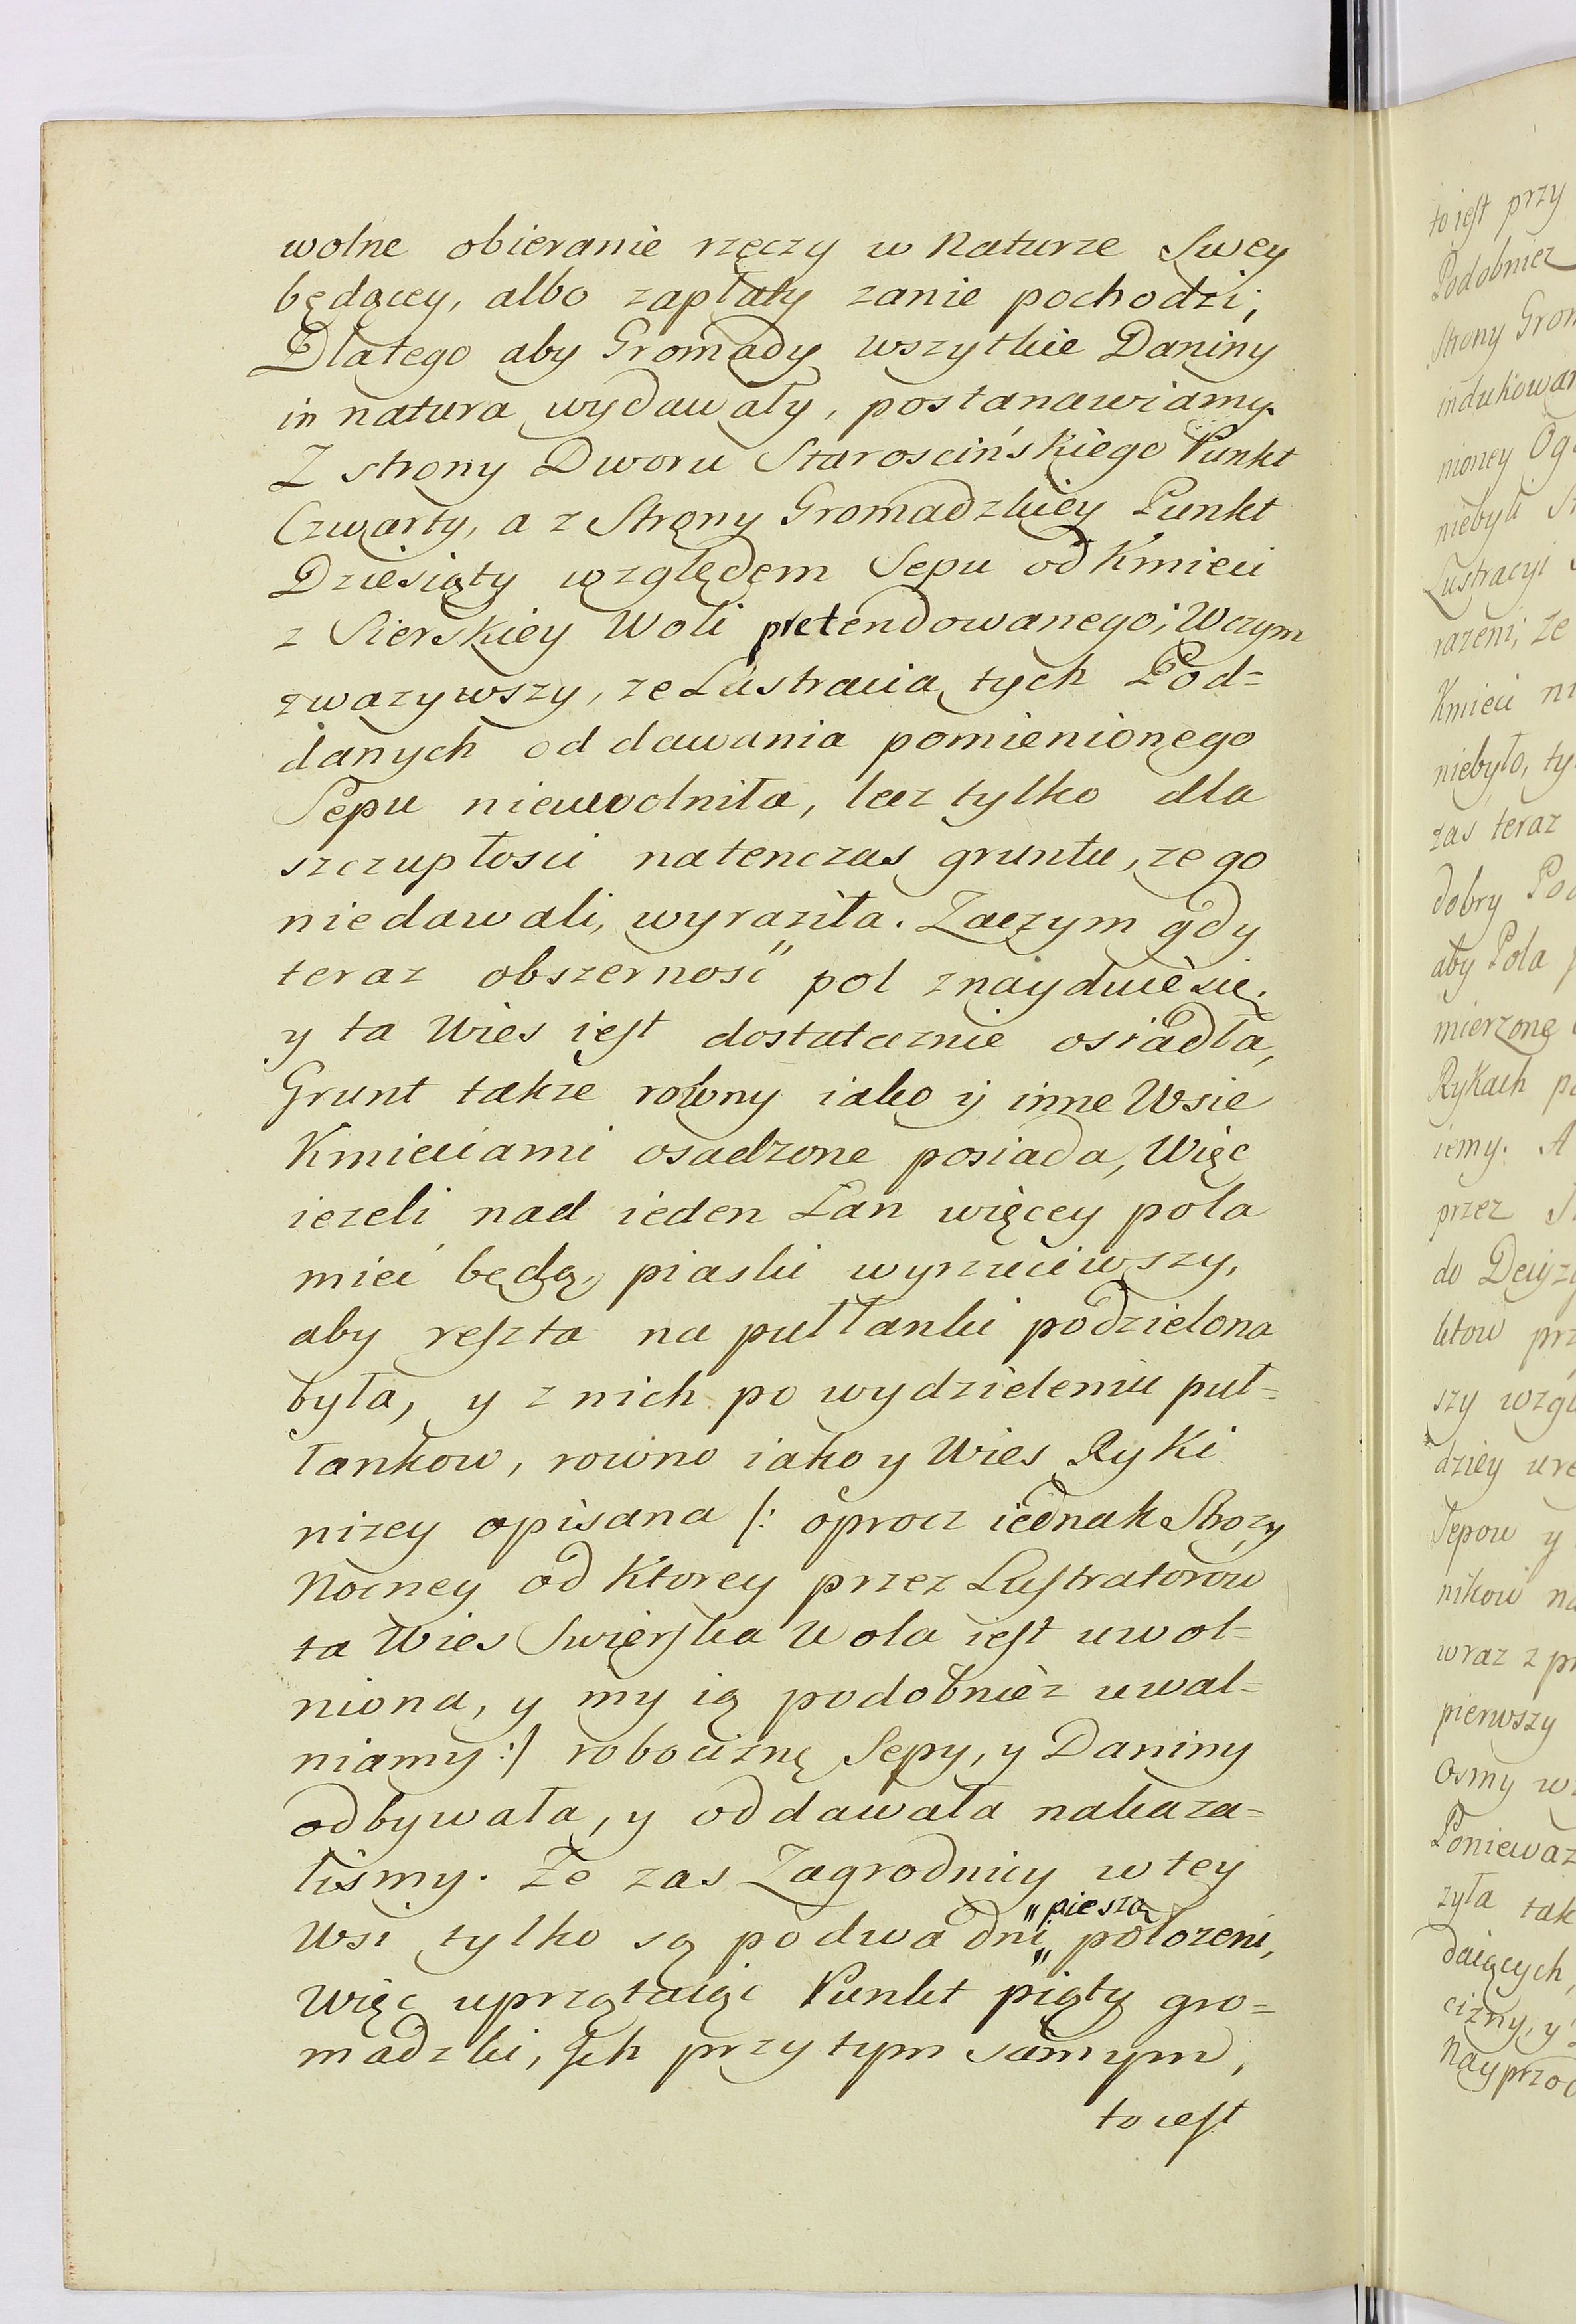 wolne obieranie rzęczy w Naturze Swey
będącey, albo zapłaty zanie pochodzi;
Dlatego aby Gromady wszytkie Daniny
in natura wydawały, postanawiamy.
Z strony Dworu Staroscińskiego Punkt
Czwarty, a z Strony Gromadzkiey Punkt
Dziesiąty względem Sepu od Kmieci
z Sierskiey Woli pretendowanego; Wczym
zwazywszy, ze Lustracia tych Pod=
danych od dawania pomienionego
Sepu nieuwolniła, lecz tylko dla
szczupłosci natenczas gruntu, ze go
niedawali, wyraziła. Zaczym gdy
teraz obszernosć pol znayduie się,
y ta Wies iest dostatecznie osiadła,
Grunt takze rowny iako y inne Wsie
Kmieciami osadzone posiada, Więc
iezeli nad ieden Łan więcey pola
mieć będą, piaski wyrzuciwszy,
aby reszta na pułłanki podzielona
była, y z nich po wydzieleniu puł=
łankow, rowno iako y Wies Ryki
nizey opisana /: oprocz iednak Strozy
Nocney od Ktorey przez Lustratorow
ta Wies Swierska Wola iest uwol=
niona, y my ią podobniez uwal=
niamy :/ robociznę Sepy, y Daniny
odbywała, y oddawała nakaza=
lismy. Ze zas Zagrodnicy w tey
Wsi tylko są po dwa dni "pieszo" połozeni,
Więc uprzątaiąc Punkt piąty gro=
madzki, Ich przy tym samym,
to iest
to iest przy
Podobniez
Strony Grom
indukowan
nioney Og
niebyli
Lustracyi
razeni; ze
Kmieci ni
niebyło, ty
zas teraz
dobry Pod
aby Pola
mierzone
Rykach po
iemy. A
przez
do Decyzy
prz
szy wzgl
dziey
Sepow y
nikow na
wraz z pr
pierwszy
Osmy w
Poniewaz
zyła tak
daiących
cizny, y
Nayprzod